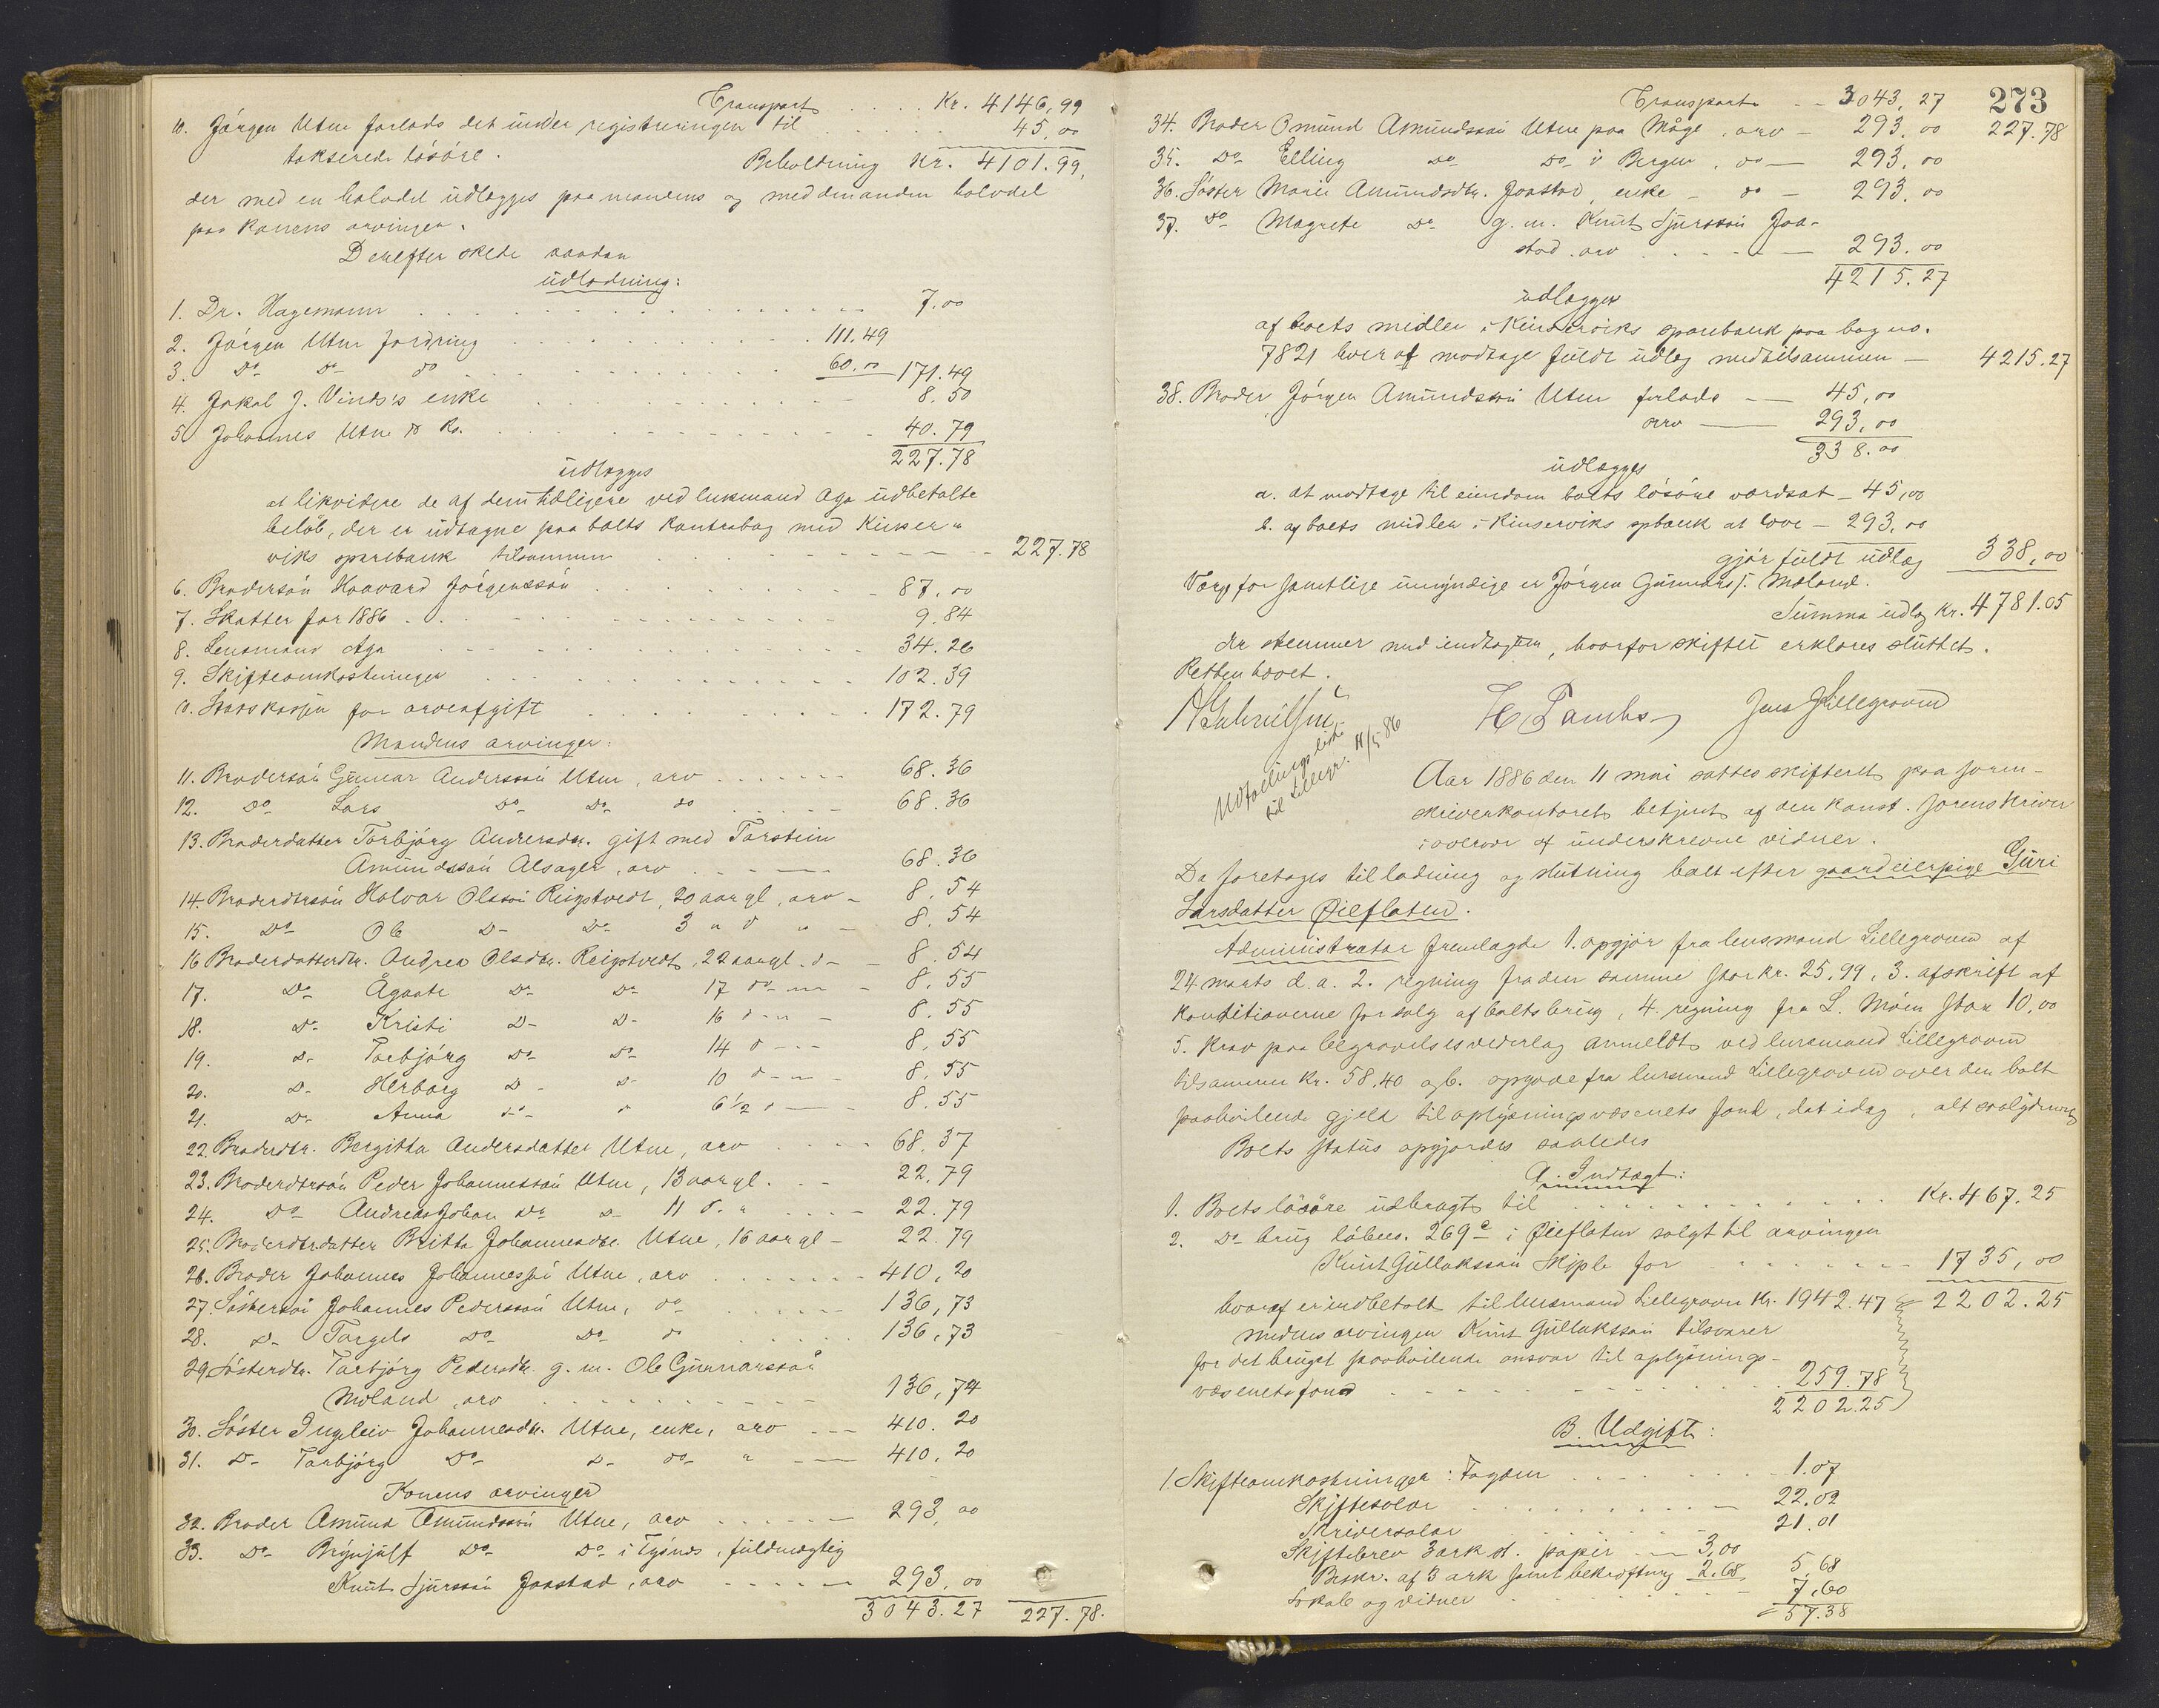 Transport . . . . Kr. 4146,99
10. Jørgen Utne forlods det under registreringen til . . . 45,00
takserede løsøre.
Beholdning Kr. 4101.99,
der med en halvdel udlægges paa mandens og med den anden halvdel
paa konens arvinger.
Derefter skede saadan
udlodning:
1. Dr. Hagemann . . . 7.00
2. Jørgen Utne fordring . . . 111.49
3. Do Do do . . . 60.00 171.49
4. Jakob J. Vinds's enke . . . 8.50
5. Johannes Utne & Ko. . . . 40.79
227.78
udlægges
at likvidere de af dem tidligere ved lensmand Aga udbetalte
beløb, der er udtagne paa boets kontrabog med Kinser-
viks sparebank tilsammen . . . 227.78
6. Brodersøn Haavard Jørgenssøn . . . 87.00
7. Skatter for 1886 . . . 9.84
8. Lensmand Aga . . . 34.26
9. Skifteomkostninger . . . 102.39
10. Statskassen for arveafgift . . . 172.79
Mandens arvinger:
11. Brodersøn Gunnar Anderssøn Utne, arv . . . 68.36
12. Do Lars Do Do do . . . 68.36
13. Broderdatter Torbjørg Andersdtr. gift med Torstein
Amundssøn Alsager, arv . . . 68.36
14. Broderdtrsøn Halvar Olssøn Reigstvedt, 20 aar gl., arv - 8.54
15. Do Ole D- Do- 3 " d " - 8.54
16 Broderdatterdtr. Andrea Olsdtr. Reigstvedt, 22 aar gl. d- - 8.54
17. Do Ågaate Do Do- 17 do- - - 8.55
18. Do Kristi D- D- 16 d- " - 8.55
19. D- Torbjørg Do Do 14 d - - - 8.55
20. D- Herborg D- D- 10 d- - - 8.55
21. Do- Anna do- d 6½ d - - 8.55
22. Broderdtr. Bergitta Andersdatter Utne, arv . . . 68.37
23. Broderdtrsøn Peder Johannessøn Utne, 13 aar gl. . - 22.79
24. Do Andreas Johan Do D- 11 d. " . . . 22.79
25. Broderdtrdatter Britta Johannesdtr. Utne, 16 aar gl - 22.79
26. Broder Johannes Johannessøn Utne, arv . . . 410,20
27. Søstersøn Johannes Pederssøn Utne, do . . . 136,73
28. D- Torgels Do Do- do . . . 136,73
29. Søsterdtr. Torbjørg Pedersdtr. g. m. Ole Gunnarssøn
Moland, arv . . . 136,74
30. Søster Ingleiv Johannesdtr. Utne, enke, arv . - - 410.20
31. D- Torbjørg Do- D- do- " - - 410,20
Konens arvinger
32. Broder Amund Amundssøn Utne, arv . . . 293,00
33. Do Brynjulf Do Do i Tysnes, fuldmægtig
Knut Sjurssøn Jaastad, arv . . . 293,00
3043.27 227.78.
273
Transport - - 3043,27
34. Broder Omund Amundssøn Utne paa Måge, arv - 293.00 227.78
35. Do Elling Do Do i Bergen, do - 293.00
36. Søster Marie Amundsdtr. Jaastad, enke - do - 293.00
37. Do Magrete Do g. m. Knut Sjurssøn Jaa-
stad. arv . . . 293.00
4215.27
udlægges
af boets midler i Kinserviks sparebank paa bog no.
7821 hveraf modtage fuldt udlæg med tilsammen - 4215.27
38. Broder Jørgen Amundssøn Utne forlods - - 45,00
arv - 293,00
338.00
udlægges
a. at modtage til eiendom boets løsøre værdsat - 45,00
b. af boets midler i Kinserviks spbank at hæve - 293.00
gjør fuldt udlæg 338,00
Værge for samtlige umyndige er Jørgen Gunnars/s. Moland.
Summa udlæg Kr. 4781.05
der stemmer med indtægten, hvorfor skiftet erklæres sluttet.
Retten hævet.
H Lambs Jens Lillegraven
Udfoeliings liste
til Lillegr. 11/5 86
Aar 1886 den 11 mai sattes skifteret paa soren-
skriverkontoret betjent af den konst. sorenskriver
i overvær af underskrevne vidner.
Da foretages til lodning og slutning boet efter gaardeierpige Guri
Larsdatter Øieflaten.
Administrator fremlagde 1. opgjør fra lensmand Lillegraven af
24 marts d. a. 2. regning fra den samme stor kr. 25,99, 3. afskrift af
konditionerne for salg af boets brug, 4. regning fra L. Moen stor 10,00
5. krav paa begravelsesvederlag anmeldt ved lensmand Lillegraven
tilsammen kr. 58.40 og 6. opgave fra lensmand Lillegraven over den boet
paahvilende gjeld til oplysningsvæsenets fond, dat idag, alt saalydende
Boets status opgjordes saaledes
A. Indtægt:
1. Boets løsøre udbragt til . . . Kr. 467.25
2. Do brug løbeno. 269c i Øieflaten solgt til arvingen
Knut Gulleikssøn Skiple for . . . 1735,00
hvoraf er indbetalt til lensmand Lillegraven kr. 1942.47 2202.25
medens arvingen Knut Gulleikssøn tilsvarer
for det bruget paahvilende ansvar til oplysnings-
væsenets fond . . . 259.78
2202.25
B. Udgift:
1. Skifteomkostninger: Fogden . . . 1.07
Skiftesalær . . . 22.02
Skriversalær . . . 21.01
Skiftebrev 3 ark st. papir - - 3,00
Beskr. af 3 ark samt bekræftning 2.68 5,68
Lokale og vidner . . . 7,60
57.38